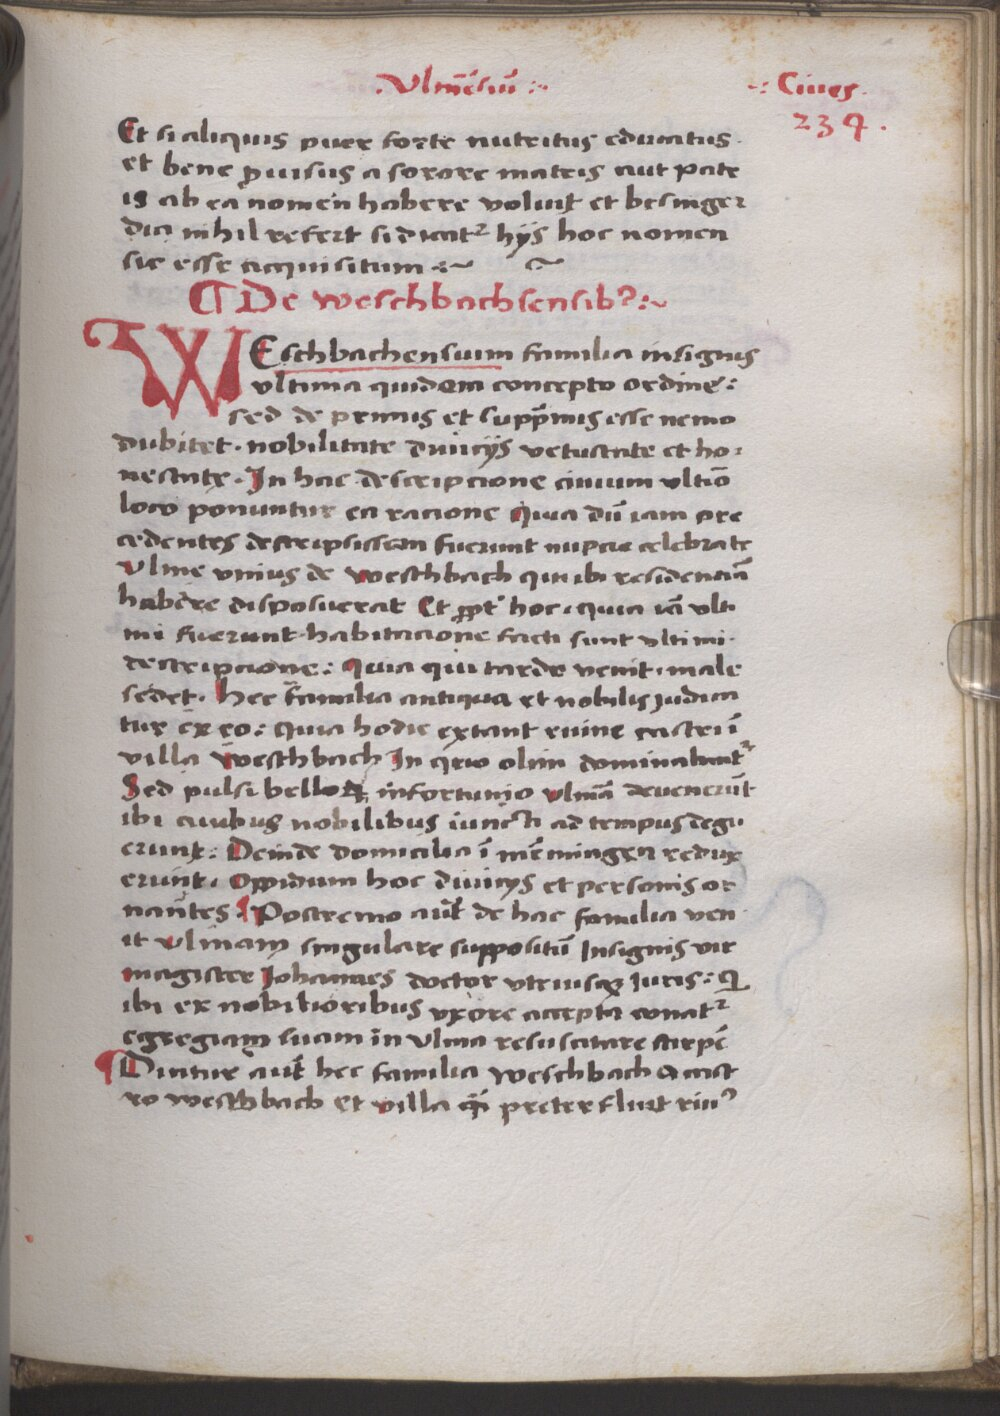 .Vlmēsiū :~
-: Ciues.
234.
Et si aliquis puer forte nutritus educatus.
et bene p̱uisus a sorore matris aut pate
is ab ea nomen habere voluit et besinger
dici nihil refert si dicat᷑ hijs hoc nomen
sic esse acquisitum :~ ~
¶ De weschbachsensibꝰ :~
WEschbachensium familia insignis
vltima quidem concepto ordine :
sed de primis et supp̄mis esse nemo
dubitet . nobilitate diuicijs vetustate et ho:
nestate . In hac descripcione ciuium vltīo
loco ponuntur ea racione Quia dū iam pre
cedentes descripsissem fuerunt nupcie celebrate
Vlme vnius de weschbach qui ibi residenciā
habere disposuerat Et ꝓpt᷑ hoc . quia iā vlti
mi fuerunt . habitacione facti sunt vltimi .
descripcione : Quia qui tarde venit . male
sedet . Hec familia antiqua et nobilis judica
tur ex eo : Quia hodie extant ruine castri ī
villa weschbach In quo olim dominabant᷑
Sed pulsi belloꝝ infortunio vlmā deuenerūt
ibi ciuibus nobilibus iuncti ad tempus degu
erunt : Deinde domicilia ī mēmingen redux
erunt . Oppidum hoc diuicijs et personis or
nantes ¶ Postremo aūt de hac familia ven
it Vlmam singulare suppositū Insignis vir
magister Johannes doctor vtriusqꝫ Iuris : Q
ibi ex nobilioribus vxore accepta conat᷑
egregiam suam in Vlma resuscitare stirpē
¶ Dicitur aūt hec familia weschbach a cast
ro weschbach et villa q̄ preterfluit riuꝰ